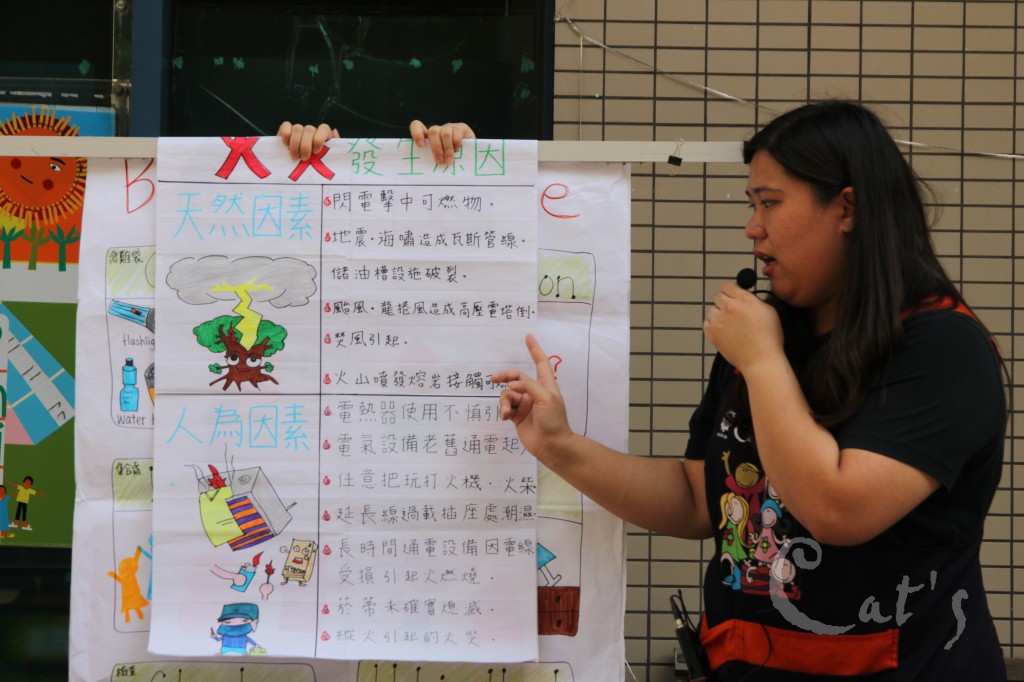 火災發生原因
天然因素
閃電擊中可燃物.
地震.海嘯造成瓦斯管線.
儲油槽設施破裂.
颱風.龍捲風造成高壓電塔倒.
焚風引起.
火山噴發熔岩接觸可燃
人為因素
電熱器使用不慎引
電氣設備老舊通電起
任意把玩打火機.火柴
延長線過載插座處潮濕.
長時間通電設備因電線
受損引起火燃燒.
菸蒂未確實熄滅.
縱火引起的火災
B
e
on
flashlig
water b
集合處
檢查
Cat's